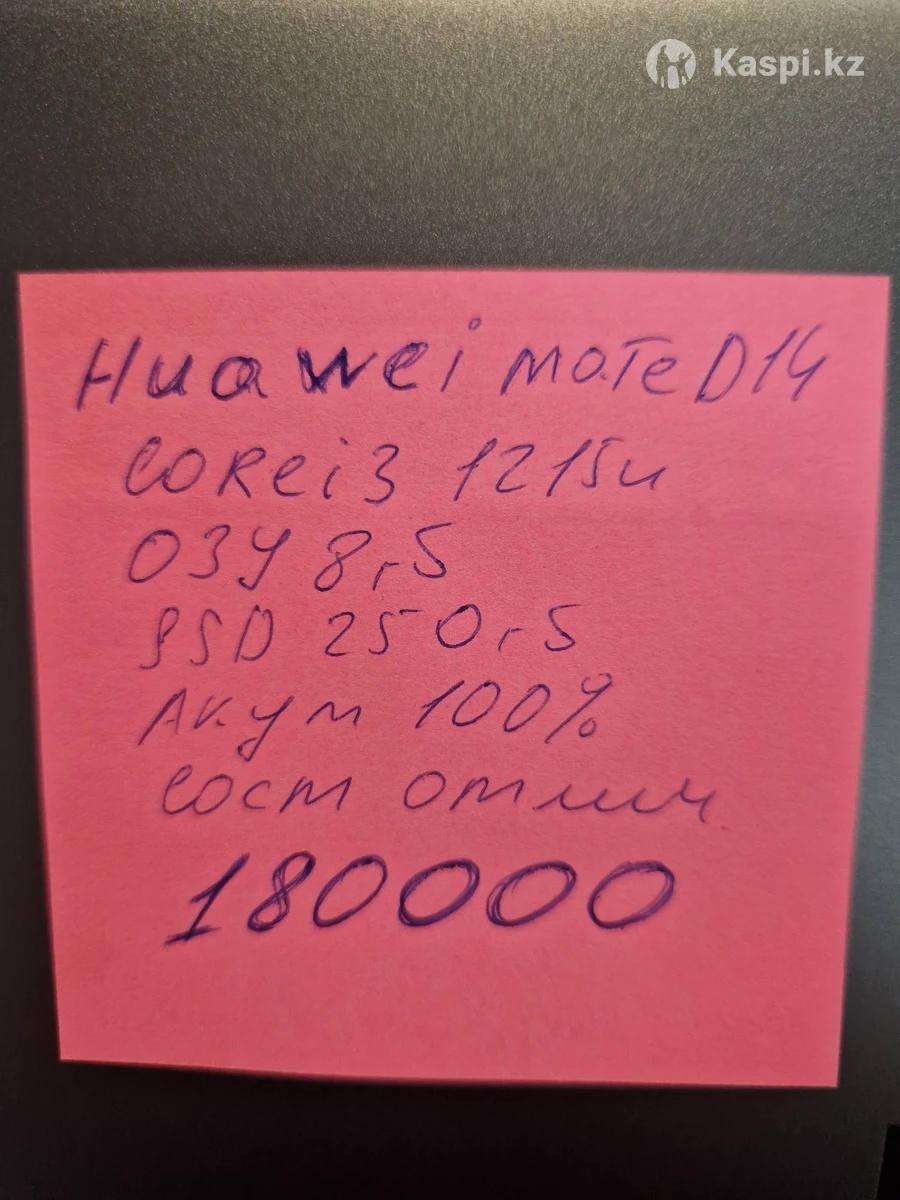 Kaspi.kz
Huawei mateD14
CORei3 1215u
ОЗУ 8гб
SSD 250гб
Акум 100%
Сост отлич
180000